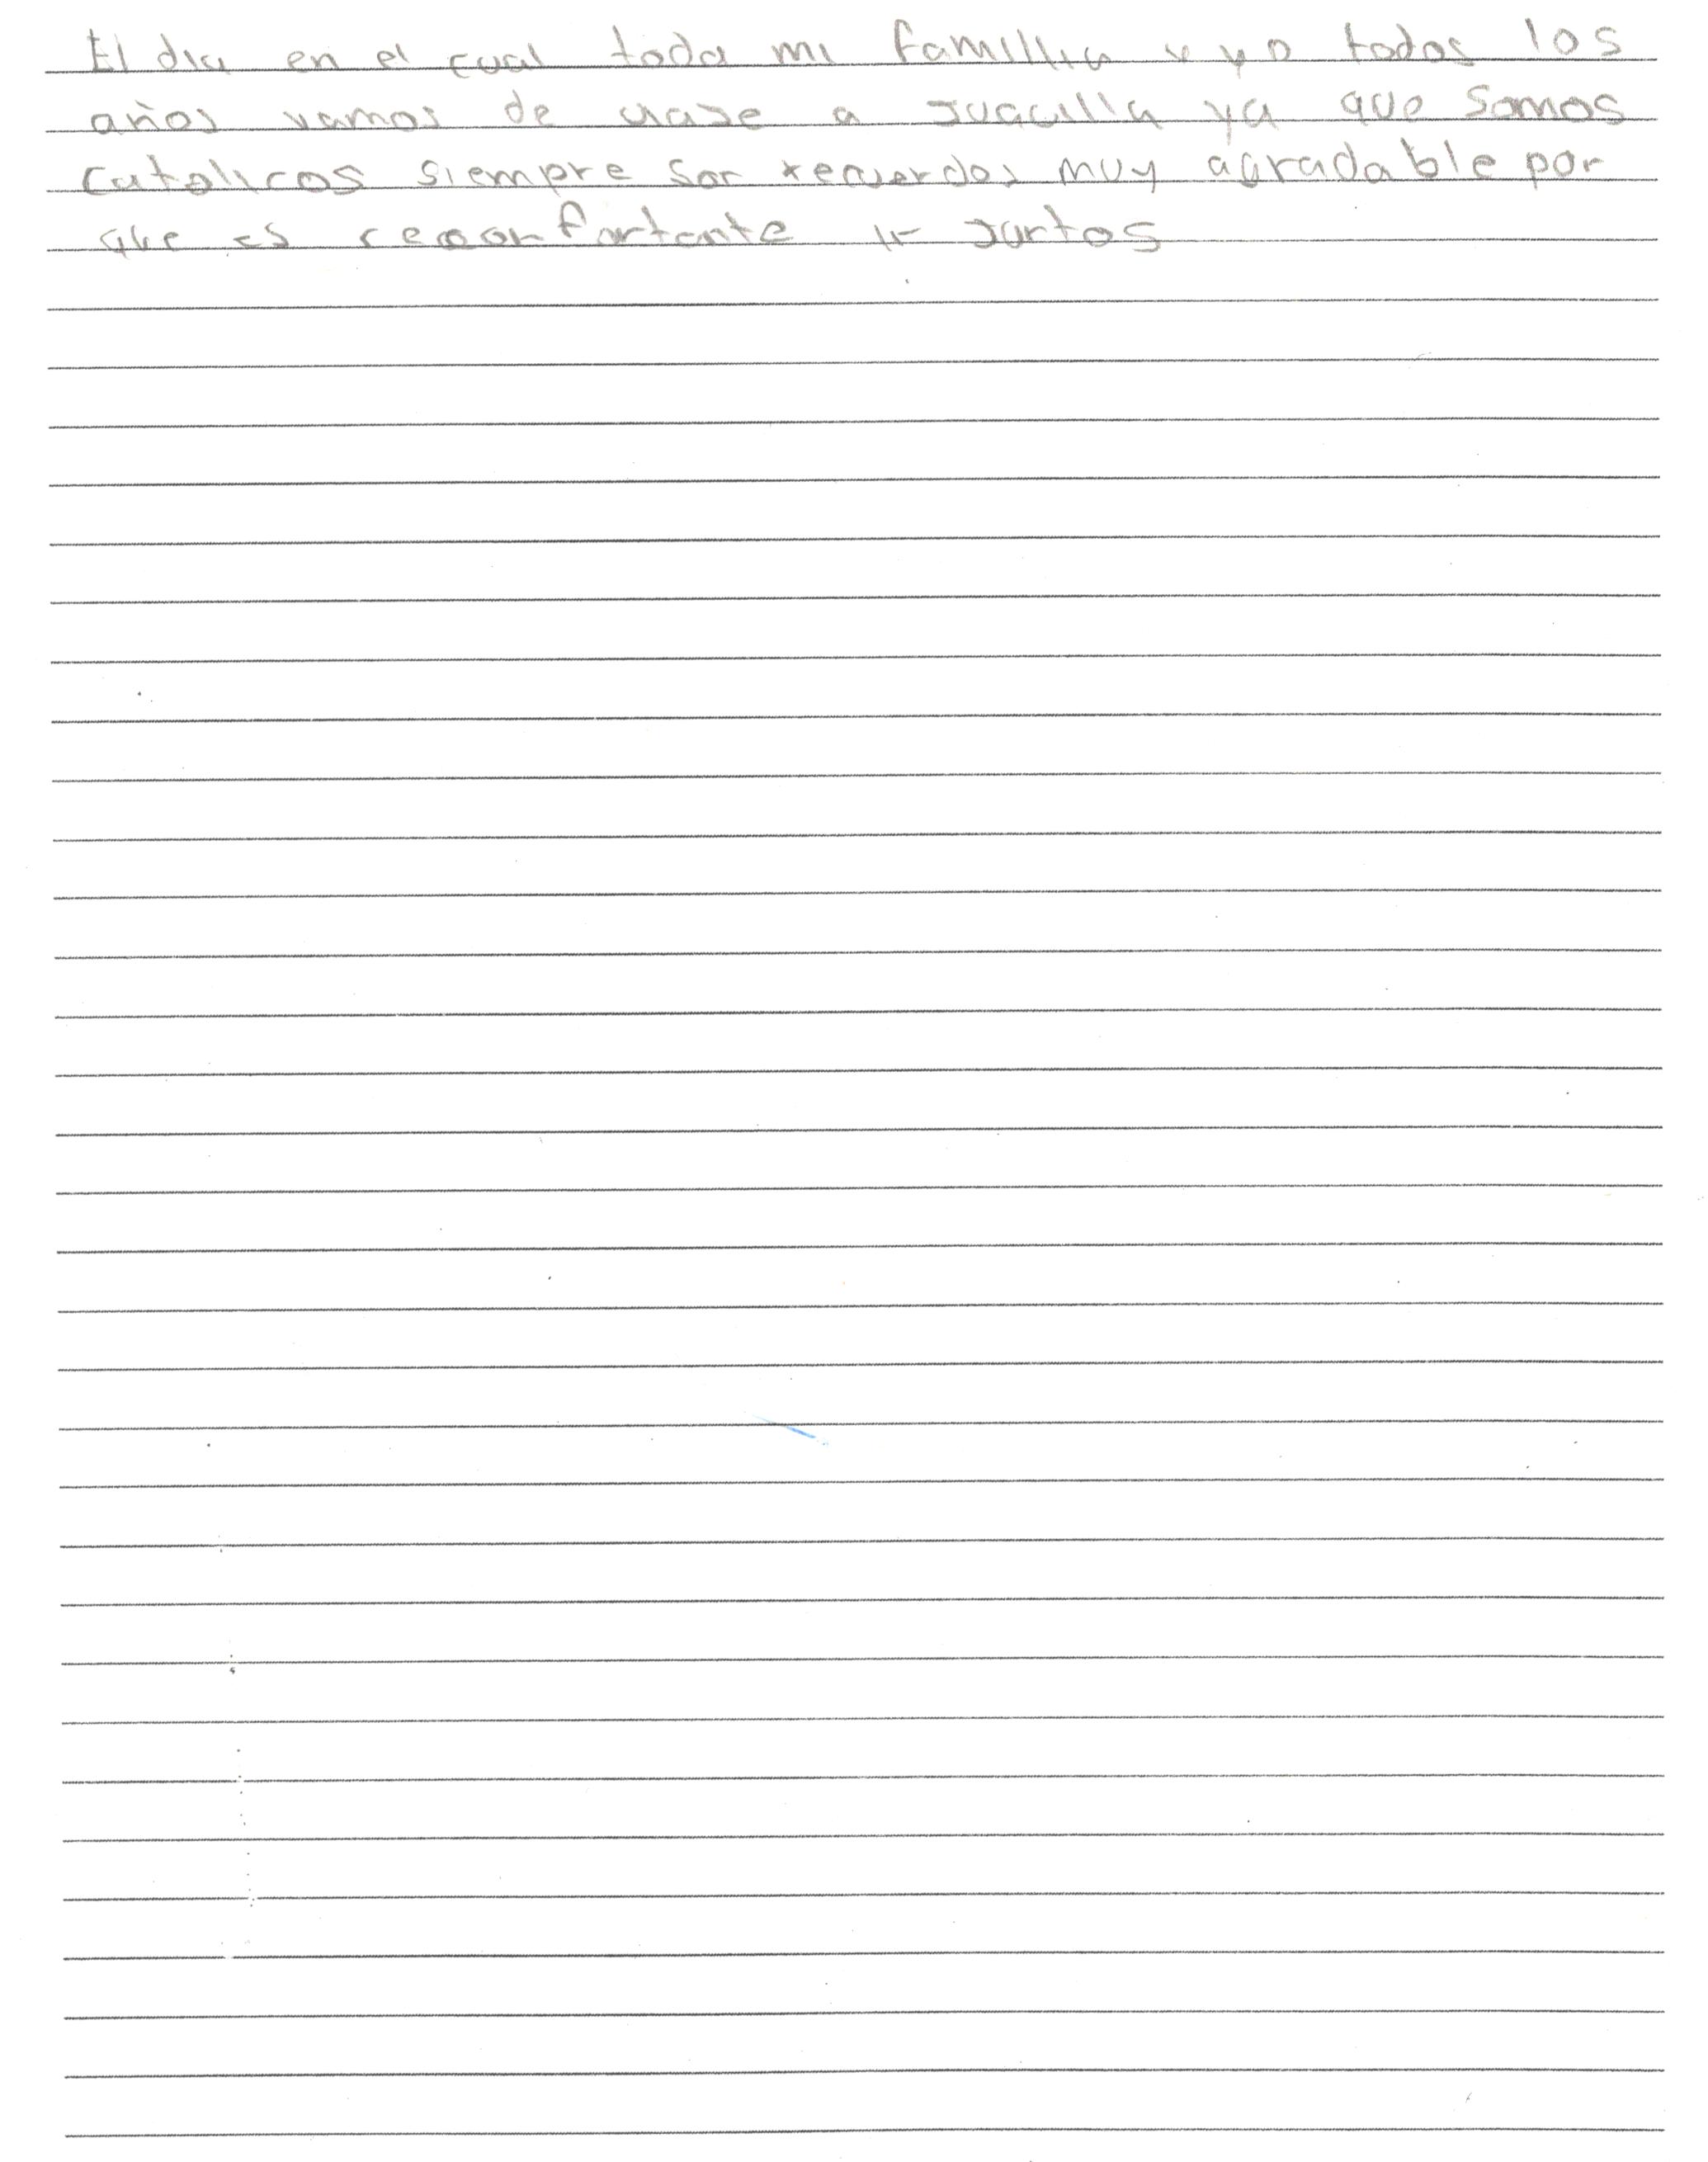 El dia en el cual toda mi famillia y yo todos los
años vamos de viaje a Juquilla ya que somos
catolicos siempre son recuerdos muy agradable por
que es reconfortante ir juntos